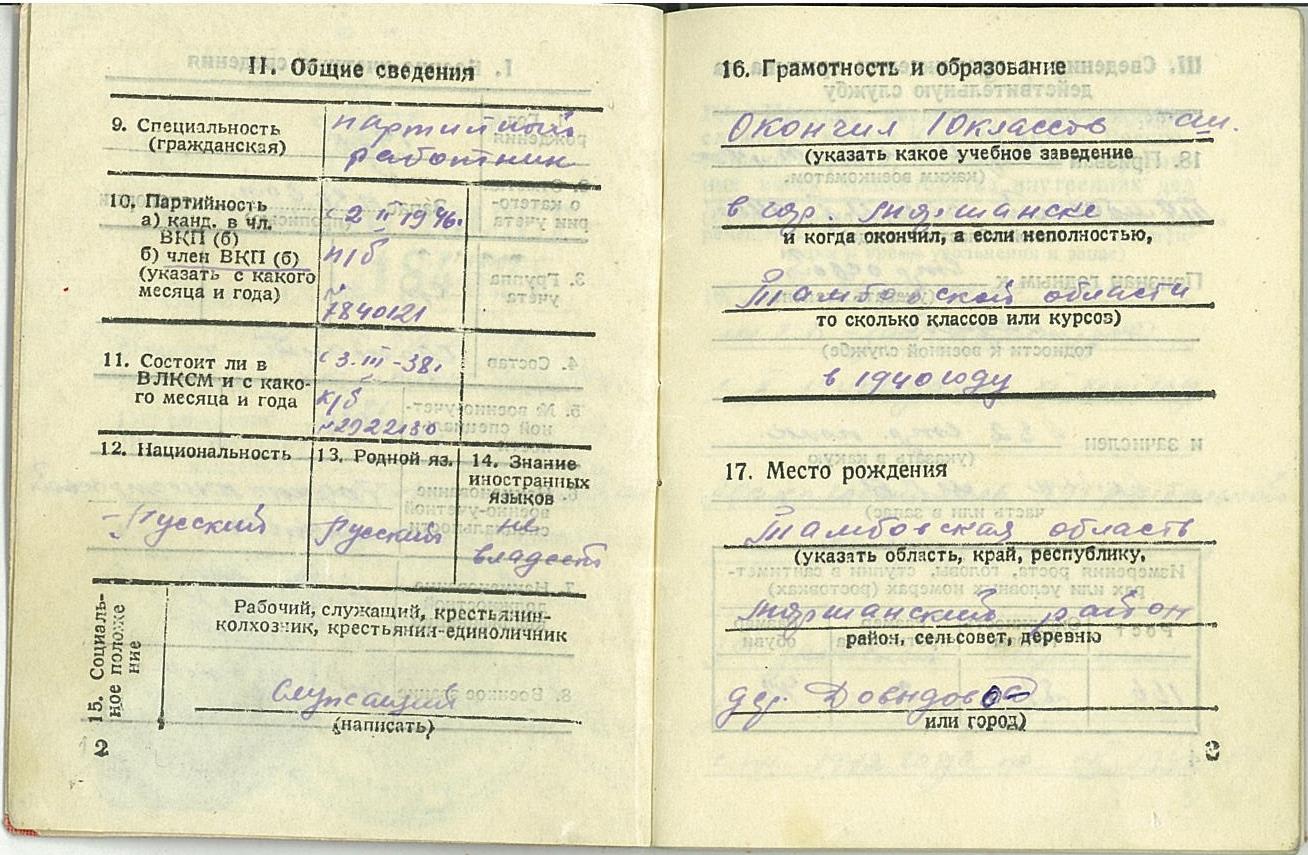 II. Общие сведения
9. Специальность
(гражданская)
партийный
работник
10. Партийность
а) канд. в чл.
ВКП (б)
б) член ВКП (б)
(указать с какого
месяца и года)
с 2 II 1946.
п/б
№
7840121
11. Состоит ли в
ВЛКСМ и с како-
го месяца и года
с 3.III-38.
к/б
12. Национальность
Русский
13. Родной яз.
Русский
14. Знание
иностранных
языков
не
владеет
15. Социаль-
ное положе
ние
Рабочий, служащий, крестьянин-
колхозник, крестьянин-единоличник
Служащий
(написать)
2
16. Грамотность и образование
Окончил 10 классов
(указать какое учебное заведение
в гор. Моршанске
и когда окончил, а если неполностью,
Тамбовской области
то сколько классов или курсов)
в 1940 году
17. Место рождения
Тамбовская область
(указать область, край, республику,
Моршанский район
район, сельсовет, деревню
дер.
или город)